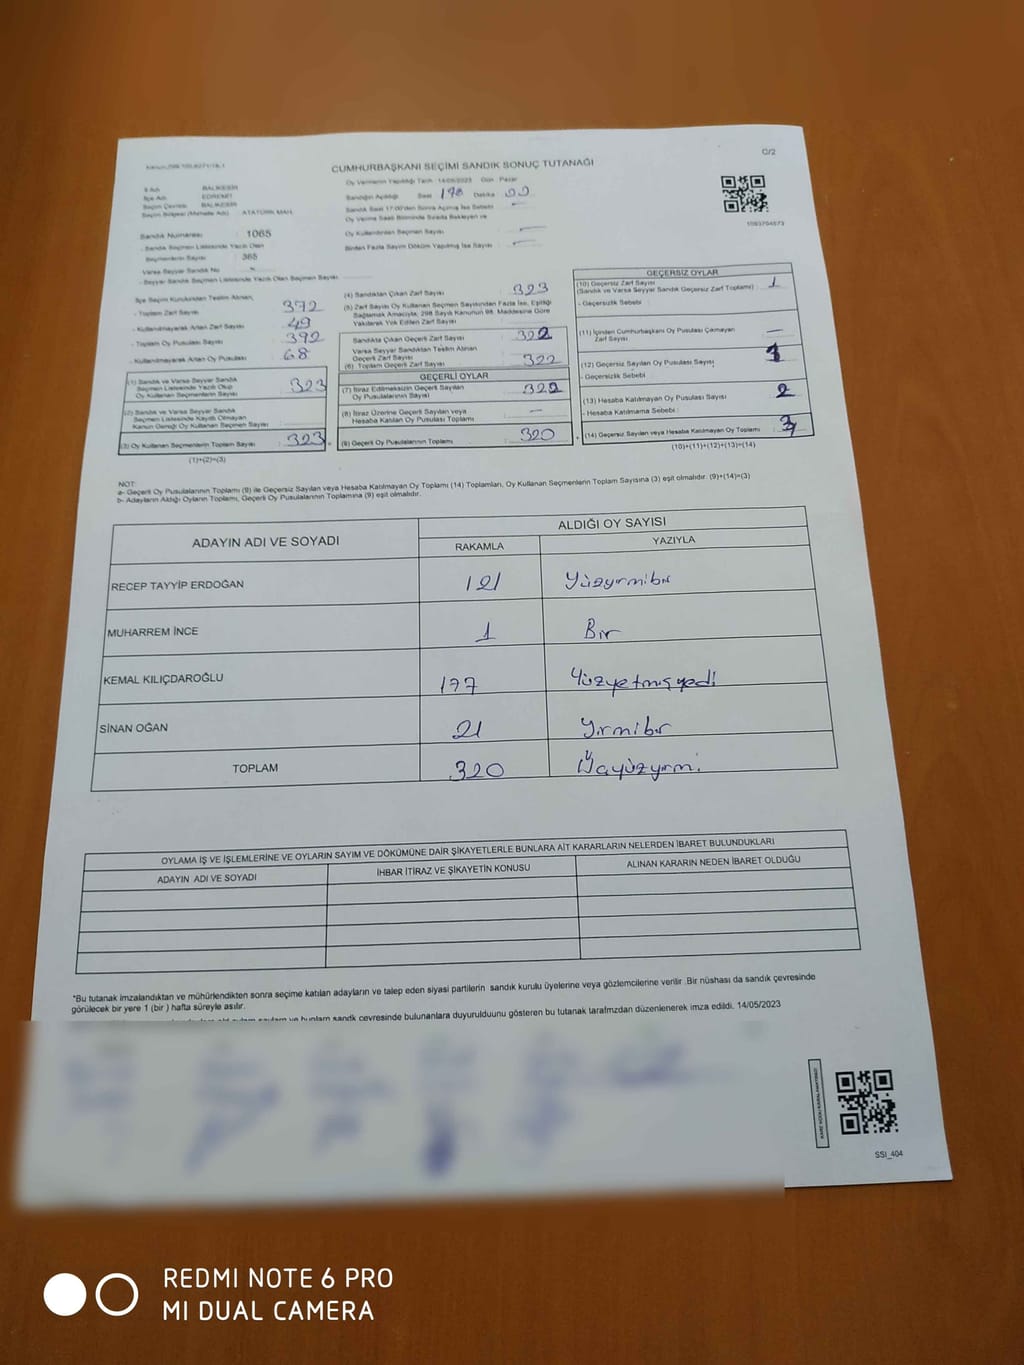 C/2
CUMHURBAŞKANI SEÇİMİ SANDIK SONUÇ TUTANAĞI
İl Adı BALIKESİR
İlçe Adı EDREMİT
Seçim Çevresi BALIKESİR
Seçim Bölgesi (Mahalle Adı) ATATÜRK MAH.
Sandık Numarası : 1065
- Sandık Seçmen Listesinde Yazılı Olan
Seçmenlerin Sayısı : 365
Varsa Seyyar Sandık No
- Seyyar Sandık Seçmen Listesinde Yazılı Olan Seçmen Sayısı
Oy Vermenin Yapıldığı Tarih : 14/05/2023 Gün : Pazar
Sandığın Açıldığı Saat Dakika
Sandık Saat 17:00'den Sonra Açılmış İse Sebebi
Oy Verme Saati Bitiminde Sırada Bekleyen ve
Oy Kullandırılan Seçmen Sayısı
Birden Fazla Sayım Döküm Yapılmış İse Sayısı
1093704573
İlçe Seçim Kurulundan Teslim Alınan;
- Toplam Zarf Sayısı : 372
- Kullanılmayarak Artan Zarf Sayısı : 49
- Toplam Oy Pusulası Sayısı : 392
- Kullanılmayarak Artan Oy Pusulası : 68
(1) Sandık ve Varsa Seyyar Sandık
Seçmen Listesinde Yazılı Olup
Oy Kullanan Seçmenlerin Sayısı : 323
(2) Sandık ve Varsa Seyyar Sandık
Seçmen Listesinde Kayıtlı Olmayan
Kanun Gereği Oy Kullanan Seçmen Sayısı
(3) Oy Kullanan Seçmenlerin Toplam Sayısı : 323
(1)+(2)=(3)
(4) Sandıktan Çıkan Zarf Sayısı : 323
(5) Zarf Sayısı Oy Kullanan Seçmen Sayısından Fazla İse, Eşitliği
Sağlamak Amacıyla, 298 Sayılı Kanunun 98. Maddesine Göre
Yakılarak Yok Edilen Zarf Sayısı
Sandıkta Çıkan Geçerli Zarf Sayısı : 322
Varsa Seyyar Sandıktan Teslim Alınan
Geçerli Zarf Sayısı
(6) Toplam Geçerli Zarf Sayısı : 322
GEÇERLİ OYLAR
(7) İtiraz Edilmeksizin Geçerli Sayılan
Oy Pusulalarının Sayısı : 322
(8) İtiraz Üzerine Geçerli Sayılan veya
Hesaba Katılan Oy Pusulası Toplamı : —
(9) Geçerli Oy Pusulalarının Toplamı : 320
GEÇERSİZ OYLAR
(10) Geçersiz Zarf Sayısı
(Sandık ve Varsa Seyyar Sandık Geçersiz Zarf Toplamı) : 1
- Geçersizlik Sebebi :
(11) İçinden Cumhurbaşkanı Oy Pusulası Çıkmayan
Zarf Sayısı : —
(12) Geçersiz Sayılan Oy Pusulası Sayısı
- Geçersizlik Sebebi :
(13) Hesaba Katılmayan Oy Pusulası Sayısı : 2
- Hesaba Katılmama Sebebi :
(14) Geçersiz Sayılan veya Hesaba Katılmayan Oy Toplamı : 3
(10)+(11)+(12)+(13)=(14)
NOT:
a- Geçerli Oy Pusulalarının Toplamı (9) ile Geçersiz Sayılan veya Hesaba Katılmayan Oy Toplamı (14) Toplamları, Oy Kullanan Seçmenlerin Toplam Sayısına (3) eşit olmalıdır. (9)+(14)=(3)
b- Adayların Aldığı Oyların Toplamı, Geçerli Oy Pusulalarının Toplamına (9) eşit olmalıdır.
ADAYIN ADI VE SOYADI
ALDIĞI OY SAYISI
RAKAMLA YAZIYLA
RECEP TAYYİP ERDOĞAN 121 Yüzyirmibir
MUHARREM İNCE 1 Bir
KEMAL KILIÇDAROĞLU 177 Yüzyetmişyedi
SİNAN OĞAN 21 Yirmibir
TOPLAM 320 Üçyüzyirmi
OYLAMA İŞ VE İŞLEMLERİNE VE OYLARIN SAYIM VE DÖKÜMÜNE DAİR ŞİKAYETLERLE BUNLARA AİT KARARLARIN NELERDEN İBARET BULUNDUKLARI
ADAYIN ADI VE SOYADI İHBAR İTİRAZ VE ŞİKAYETİN KONUSU ALINAN KARARIN NEDEN İBARET OLDUĞU
*Bu tutanak imzalandıktan ve mühürlendikten sonra seçime katılan adayların ve talep eden siyasi partilerin sandık kurulu üyelerine veya gözlemcilerine verilir .Bir nüshası da sandık çevresinde
görülecek bir yere 1 (bir ) hafta süreyle asılır.
sandık çevresinde bulunanlara duyurulduunu gösteren bu tutanak tarafmzdan düzenlenerek imza edildi. 14/05/2023
SSI_404
REDMI NOTE 6 PRO
MI DUAL CAMERA